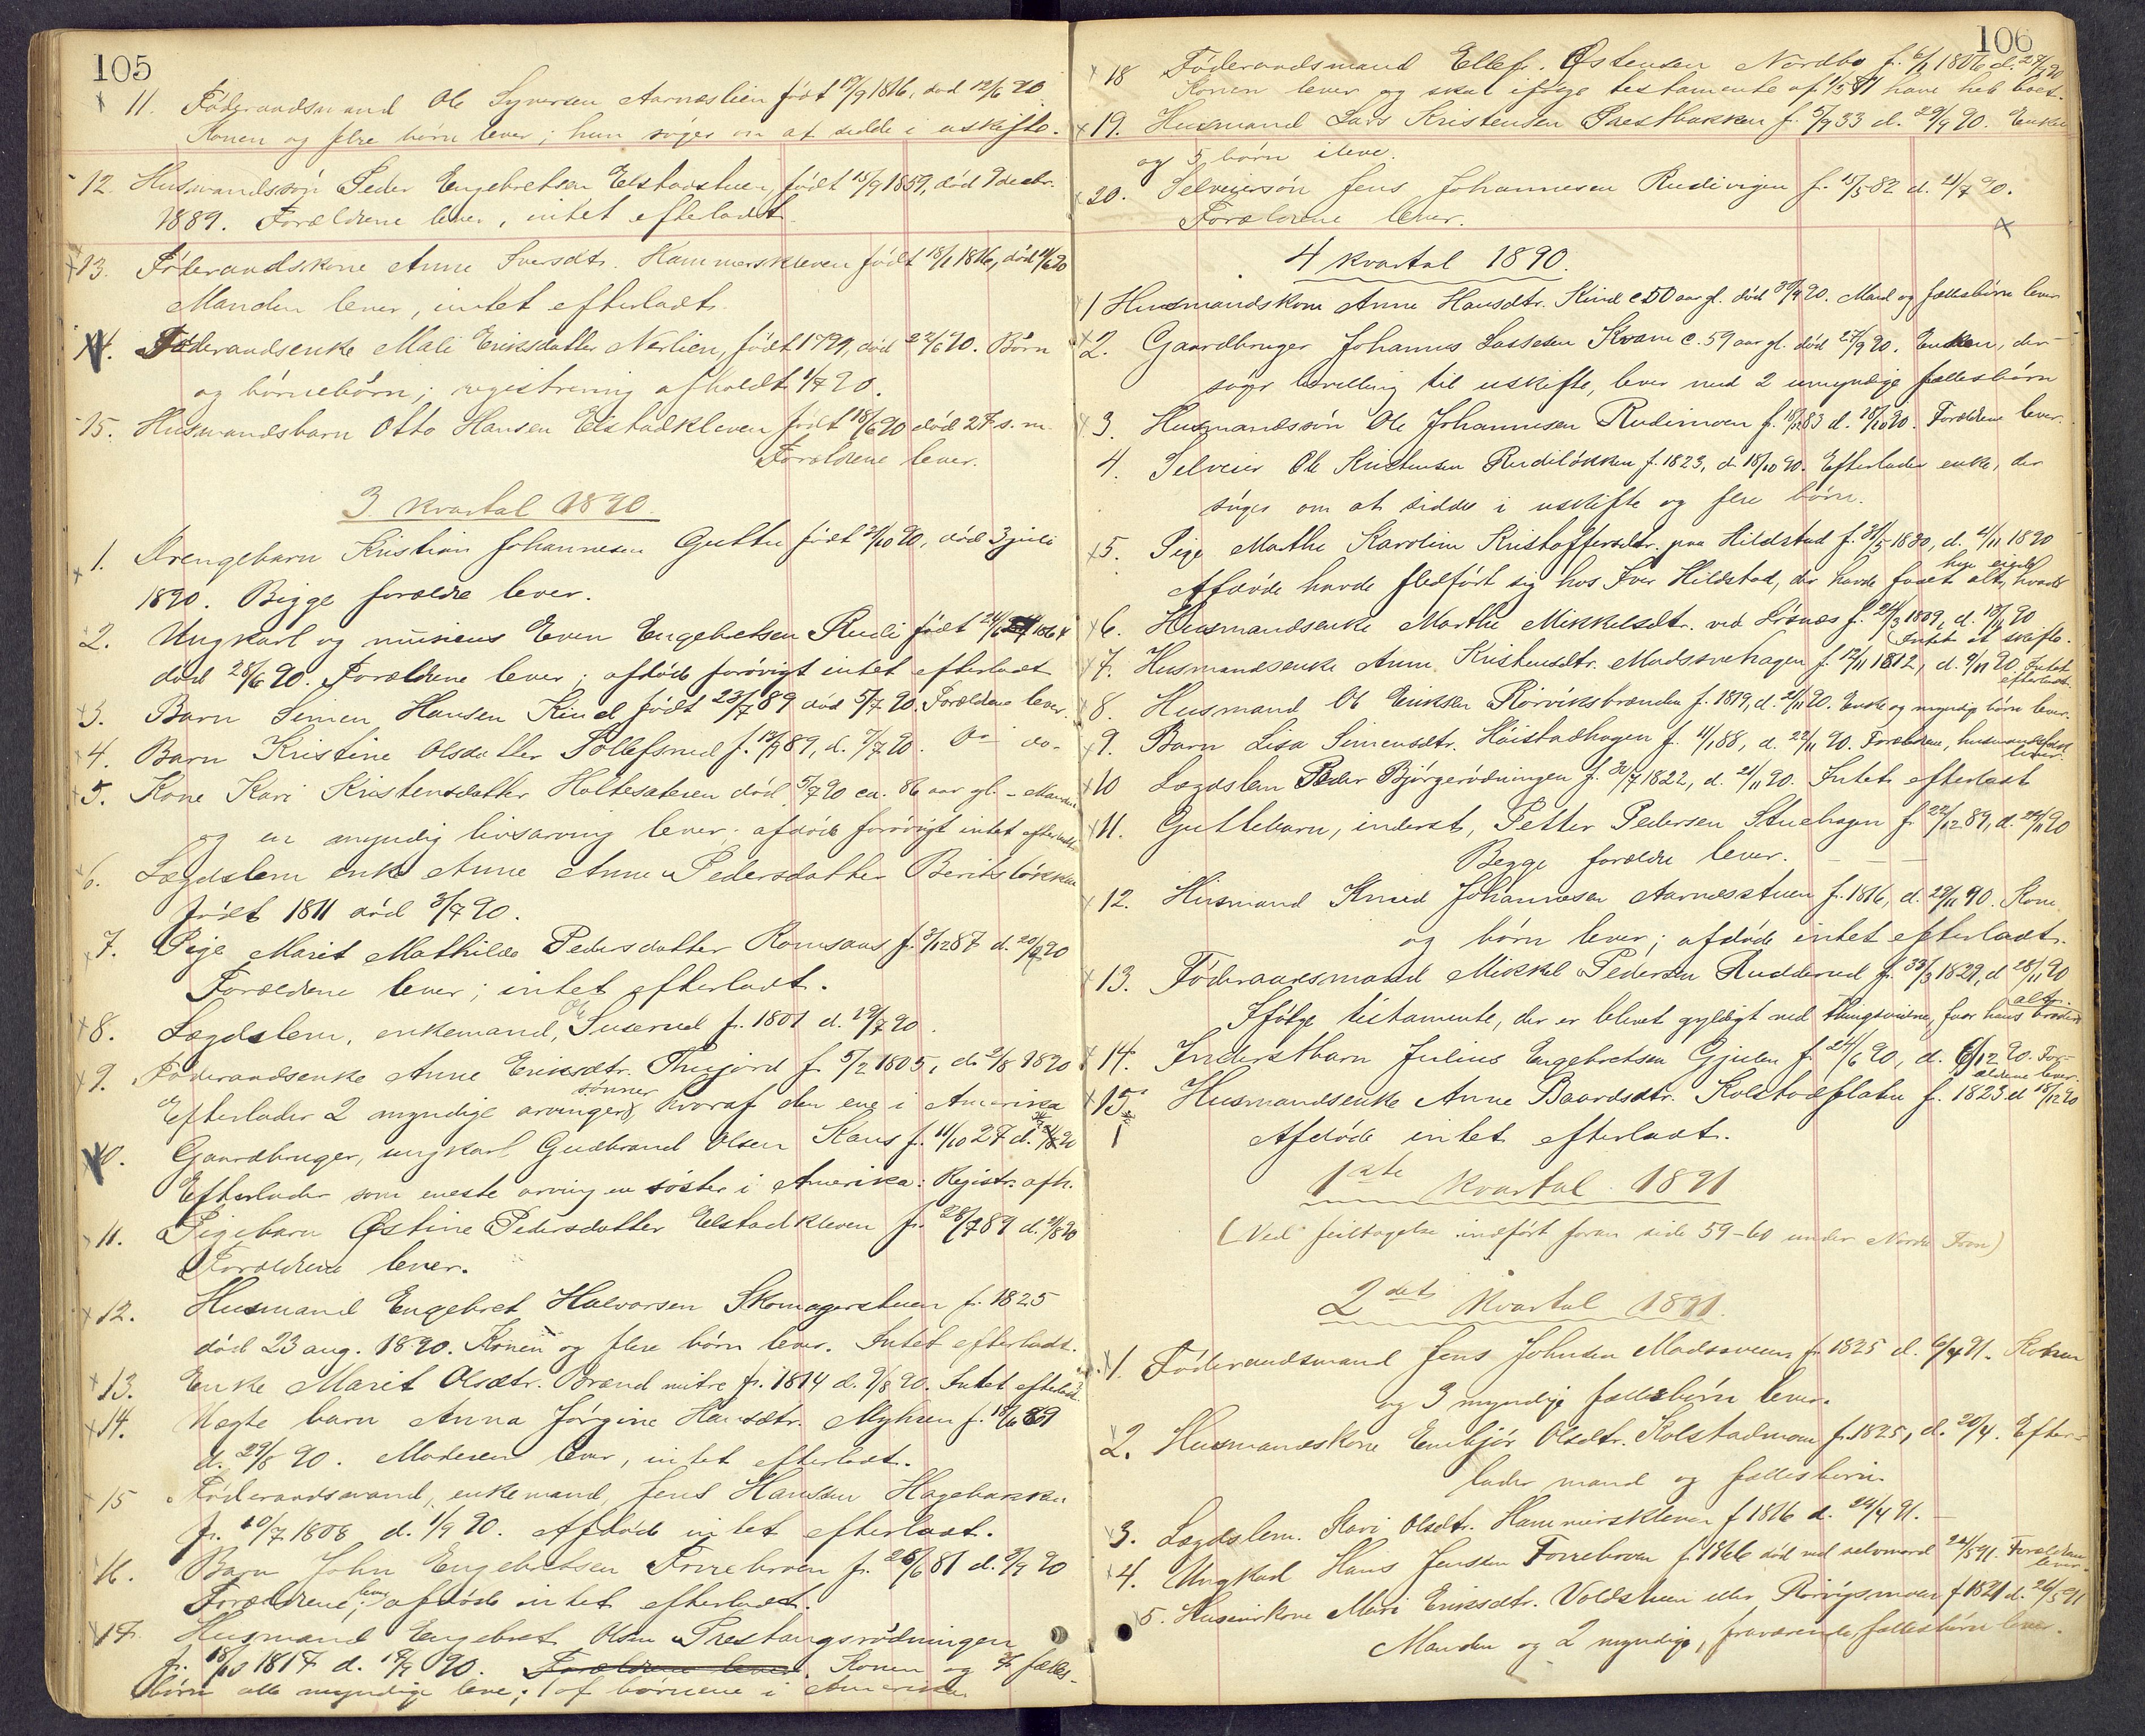 105
11. Föderaadsmand Ole Syversen Aarneslien født 19/9 1816, död 12/6 90.
Konen og flere börn lever; hun söger om at sidde i uskifte.
12. Husmandssön Peder Engebretsen Elstadstuen, født 15/9 1859, död 9 decbr.
1889. Forældrene lever, intet efterladt.
13. Föderaadskone Anne Iversdtr. Hammerskleven født 18/1 1816, död
Manden lever, intet efterladt.
14. Föderaadsenke Mali Eriksdatter Nerlien, født 1799, död 22/6 90. Börn
og börnebörn; registrering afholdt 1/7 90.
15. Husmandsbarn Otto Hansen Elstadkleven født 18/6 90 död 27 s. m.
Forældrene lever.
3 kvartal 1890.
1. Drengebarn Kristian Johannesen Guttu født död 3 juli
1890. Begge forældre lever.
2. Ungkarl og Even Engebretsen Rudi født 24/6 1864
död 28/6 90. Forældrene lever; afdöde forövrigt intet efterladt
3. Barn Simen Hansen Kind født 23/7 89 död 5/7 90. Forældrene lever.
4. Barn Kristine Olsdatter f. d. 7/7 90. Do do.
5. Kone Kari Kristensdatter Holtesæteren död 5/7 90 ca. 86 aar gl. - Manden
og en myndig livsarving lever; afdöde forövrigt intet efterladt
6. Lægdslem enke Anne Anne Pedersdatter Beritslökken
født 1811 död 3/7 90.
7. Pige Marit Mathilde Pedersdatter Romsaas f. 3/12 87 d.
Forældrene lever; intet efterladt.
8. Lægdslem, enkemand, Ole Suserud f. 1801 d. 19/7 90.
9. Föderaadsenke Anne Eriksdtr. Thujord f. 5/2 1805, d. 1890
sønner
Efterlader 2 myndige arvinger, hvoraf den ene i Amerika
10. Gaardbruger, ungkarl Gudbrand Olsen Kaus f. 11/10 27 d.
Efterlader som eneste arving en söster i Amerika. Registr. afh.
11. Pigebarn Østine Pedersdatter Elstadkleven f. 28/7 89 d.
Forældrene lever.
12. Husmand Engebret Halvorsen Skomagerstuen f. 1825
död 23 aug. 1890. Konen og flere börn lever. Intet efterladt.
13. Enke Marit Olsdtr. f. 1814 d. 9/8 90. Intet efterladt.
14. Uægte barn Anna Jörgine Hansdtr. Myhren f.
d. 29/8 90. Moderen lever, intet efterladt.
15 Föderaadsmand, enkemand Jens Hansen Hagebakken
f. 20/7 1808 d. 1/9 90. Afdöde intet efterladt.
16. Barn John Engebretsen f. 28/6 81 d. 90
Forældrene lever; afdöde intet efterladt.
17. Husmand Engebret Olsen Prestangsrödningen
f. 1817 d. 90. Forældrene lever. Konen og 7 fælles-
börn alle myndige leve; 1 af börnene i Amerika
106
18 Föderaadsmand Ellef. Østensen Nordbo f. 6/1 1806 d.
Konen lever og skal ifölge testamente af have hele boet.
19. Husmand Lars Kristensen Prestbakken f. 5/9 33 d. 29/9 90. Enke
og 5 börn ilive.
20. Selveiersön Jens Johannesen Rudivigen f. 15/5 82 d. 90.
Forældrene lever.
4 kvartal 1890.
1 Husmandskone Anne Hansdtr. Kind c. 50 aar gl. död 90. Mand og fællesbörn lever
2. Gaardbruger Johannes Lassesen Kvam c. 59 aar gl. död 27/9 90. Enken, der
söger bevilling til uskifte, lever med 2 umyndige fællesbörn
3. Husmandssön Ole Johannesen Rudimoen f. 83 d. 90. Forældrene lever.
4. Selveier Ole Kristensen Rudilökken f. 1823, d. 18/10 90. Efterlader enke, der
söger om at sidde i uskifte og flere börn.
5. Pige Marthe Karoline Kristoffersdtr. paa Hildstad f. 31/5 1830, d. 4/11 1890
Afdöde havde fledfört sig hos Iver Hildstad, der havde faaet alt, hvad hun eiede
6. Husmandsenke Marthe Mikkelsdtr. ved f. 1809, d. 90
Intet at skifte.
7. Husmandsenke Anne Kristensdtr. Madssvehagen f. 12/11 1812, d. 9/11 90. Intet efterladt.
8. Husmand Ole Eriksen Rörviksbrænden f. 1819, d. 90. Enke og myndige börn lever.
9. Barn Lisa Simensdtr. Höistadhagen f. 11/1 88, d. 22/11 90. Forældrene, husmandsfolk lever.
10 Lægdslem Peder Bjørgerödningen f. 30/7 1822, d. 21/11 90. Intet efterladt
11. Guttebarn, inderst, Petter Pedersen Stuehagen f. 22/12 89, d. 90
Begge forældre lever.
12. Husmand Knud Johannesen Aarnesstuen f. 1816, d. 29/11 90. Kone
og börn lever; afdöde intet efterladt.
13. Föderaadsmand Mikkel Pedersen Rudderud f. 1829, d. 28/11 90
Ifölge testamente, der er blevet gyldigt ved thingsvidne, faar hans broder alt.
14. Inderstbarn Julius Engebretsen Gjulen f. 24/6 90, d. 6/12 90. For-
ældrene lever.
15. Husmandsenke Anne Baardsdtr. Kolstadflaten f. 1823 d. 18/12 90
Afdöde intet efterladt.
1ste kvartal 1891
(Ved feiltagelse indført foran side 59-60 under Nordre Fron)
2det kvartal 1891.
1. Föderaadsmand Jens Johnsen Madssveen f. 1825 d. 6/4 91. Konen
og 3 myndige fællesbörn lever.
2. Husmandskone Embjör Olsdtr. Kolstadmoen f. 1825, d. 20/4. Efter-
lader mand og fællesbörn.
3. Lægdslem. Kari Olsdtr. Hammerskleven f 1816 d. 24/4 91.
4. Ungkarl Hans Jensen f. 1866 död ved selvmord 91. Forældrene lever.
5. Kone Mari Eriksdtr. Voldstuen eller f 1821 d. 26/5 91
Manden og 2 myndige, fraværende fællesbörn lever.